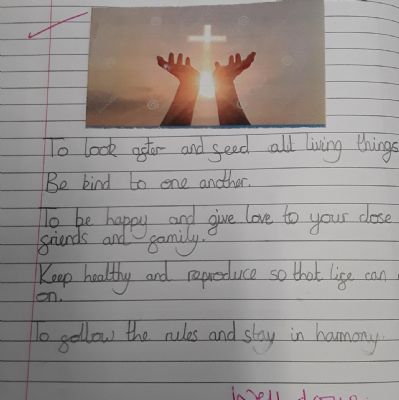 To look after and feed all living things
Be kind to one another.
To be happy and give love to your close
friends and family.
Keep healthy and reproduce so that life can
on.
To follow the rules and stay in harmony.
Well done